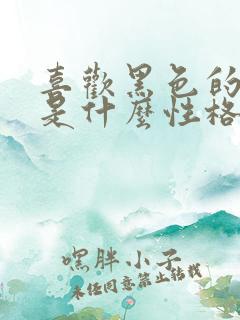 喜歡黑色的
是什麼性格
嘿胖小子
未经同意禁止转载